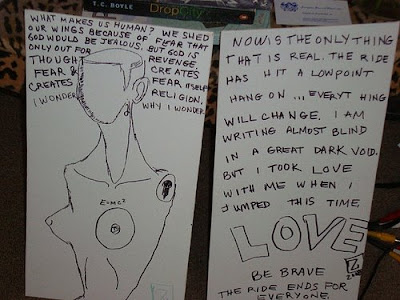 T.C. BOYLE
Drop City
WHAT MAKES US HUMAN? WE SHED
OUR WINGS BECAUSE OF FEAR THAT
GOD WOULD BE JEALOUS. BUT GOD IS
ONLY OUT FOR REVENGE.
THOUGHT CREATES
FEAR & FEAR ITSELF
CREATES RELIGION.
I WONDER WHY I WONDER.
E=MC²
NOW IS THE ONLY THING
THAT IS REAL. THE RIDE
HAS HIT A LOWPOINT
HANG ON ... EVERYTHING
WILL CHANGE. I AM
WRITING ALMOST BLIND
IN A GREAT DARK VOID.
BUT I TOOK LOVE
WITH ME WHEN I
JUMPED THIS TIME
LOVE
BE BRAVE
THE RIDE ENDS FOR
EVERYONE.